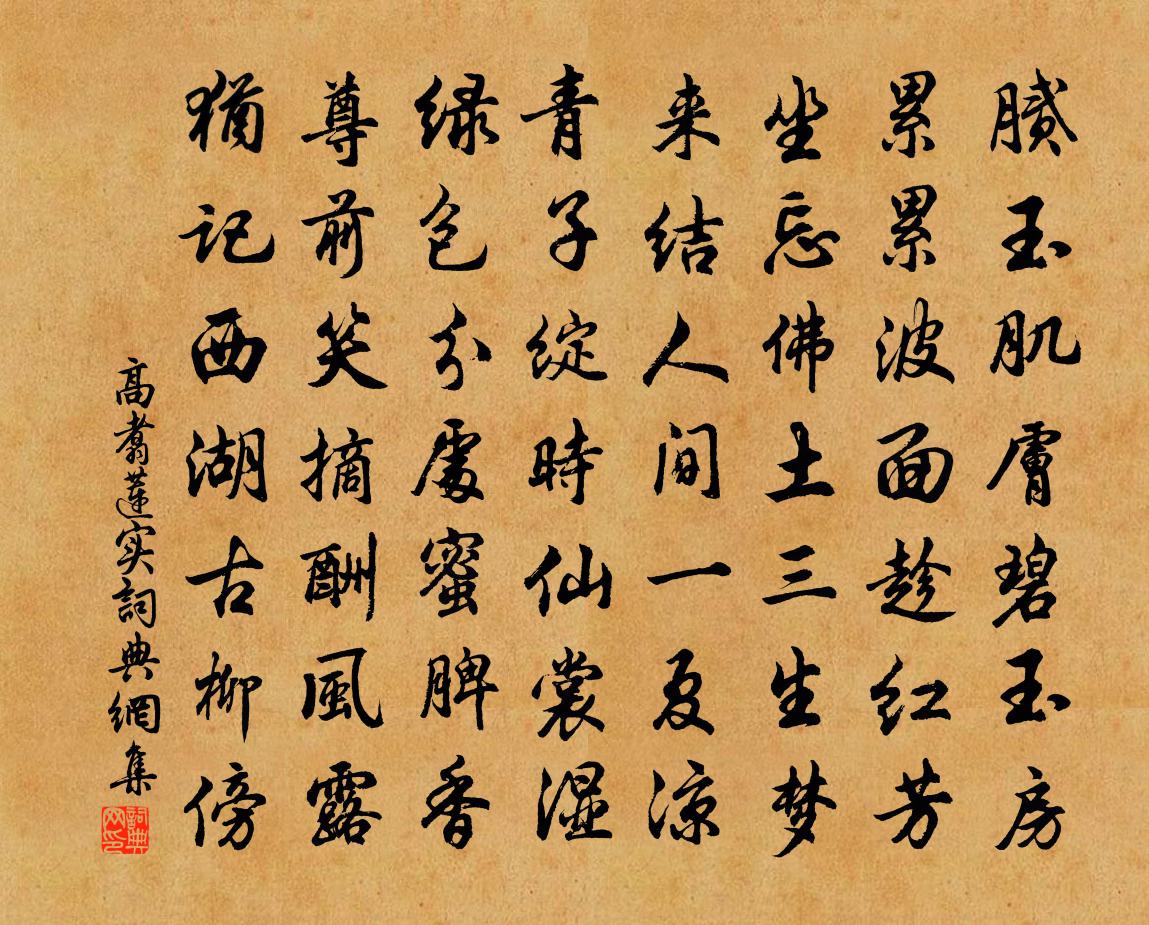 膩玉肌膚碧玉房
累累波面趁红芳
坐忘佛土三生梦
来结人间一夏凉
青子綻時仙裳湿
绿包分處蜜脾香
尊前笑摘酬風露
猶記西湖古柳傍
高翥蓮实詞典網集
詞典网印